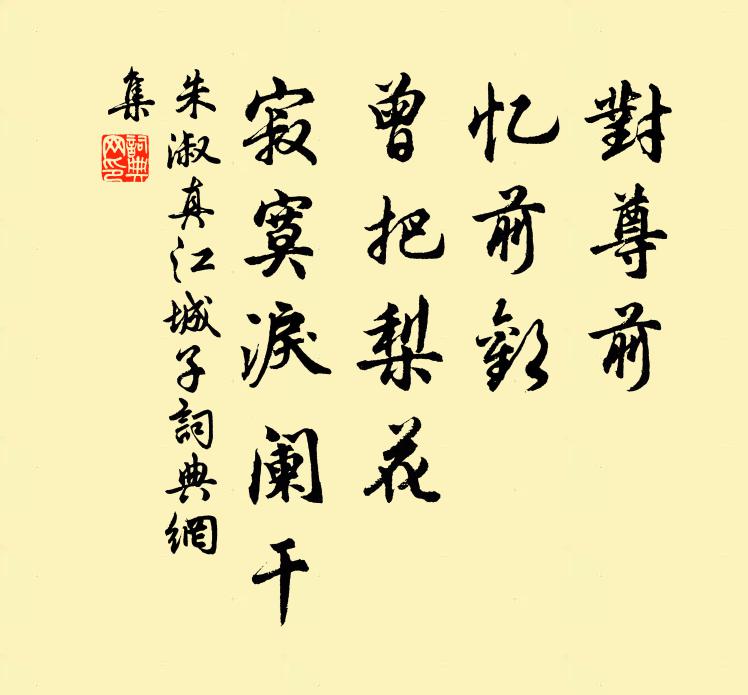 對尊前
忆前歡
曾把梨花
寂寞淚阑干
朱淑真江城子詞典網
集
詞典网印